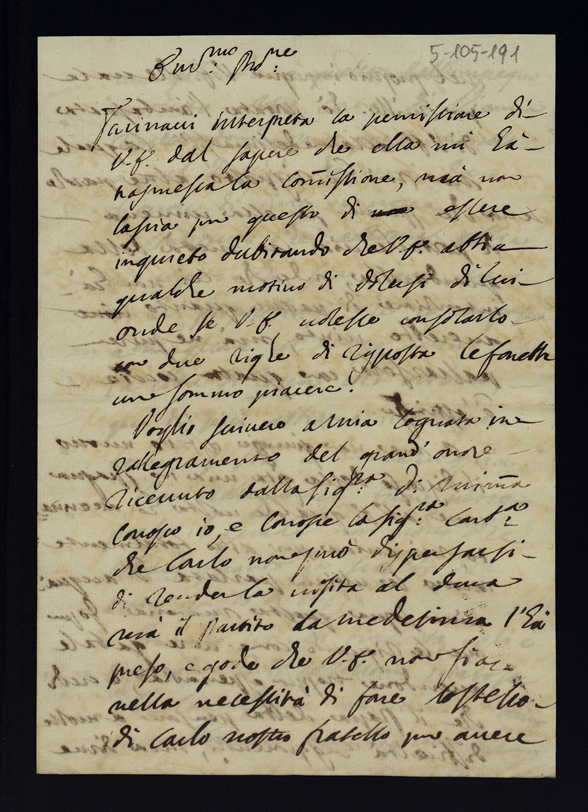 5-105-191
Farinacci interpreta la permissione di
V.S. dal sapere che ella mi hà
trasmessa la commissione, mà non
lascia per questo di essere
inquieto dubitando che V.S. abbia
qualche motivo di dolersi di lui
onde se V.S. volesse consolarlo
con due righe di risposta le sarebbe
un sommo piacere.
Voglio scrivere a mia Cognata in
rallegramento del grand' onore
ricevuto dalla Sig.ra di
Conosco io, e conosce la Sig.ra
che Carlo non può dispensarsi
di render la visita al Duca
mà il partito da medesima l'hà
preso, e gode che V.S. non sia
nella necessità di fare lo stesso
di Carlo nostro fratello per avere